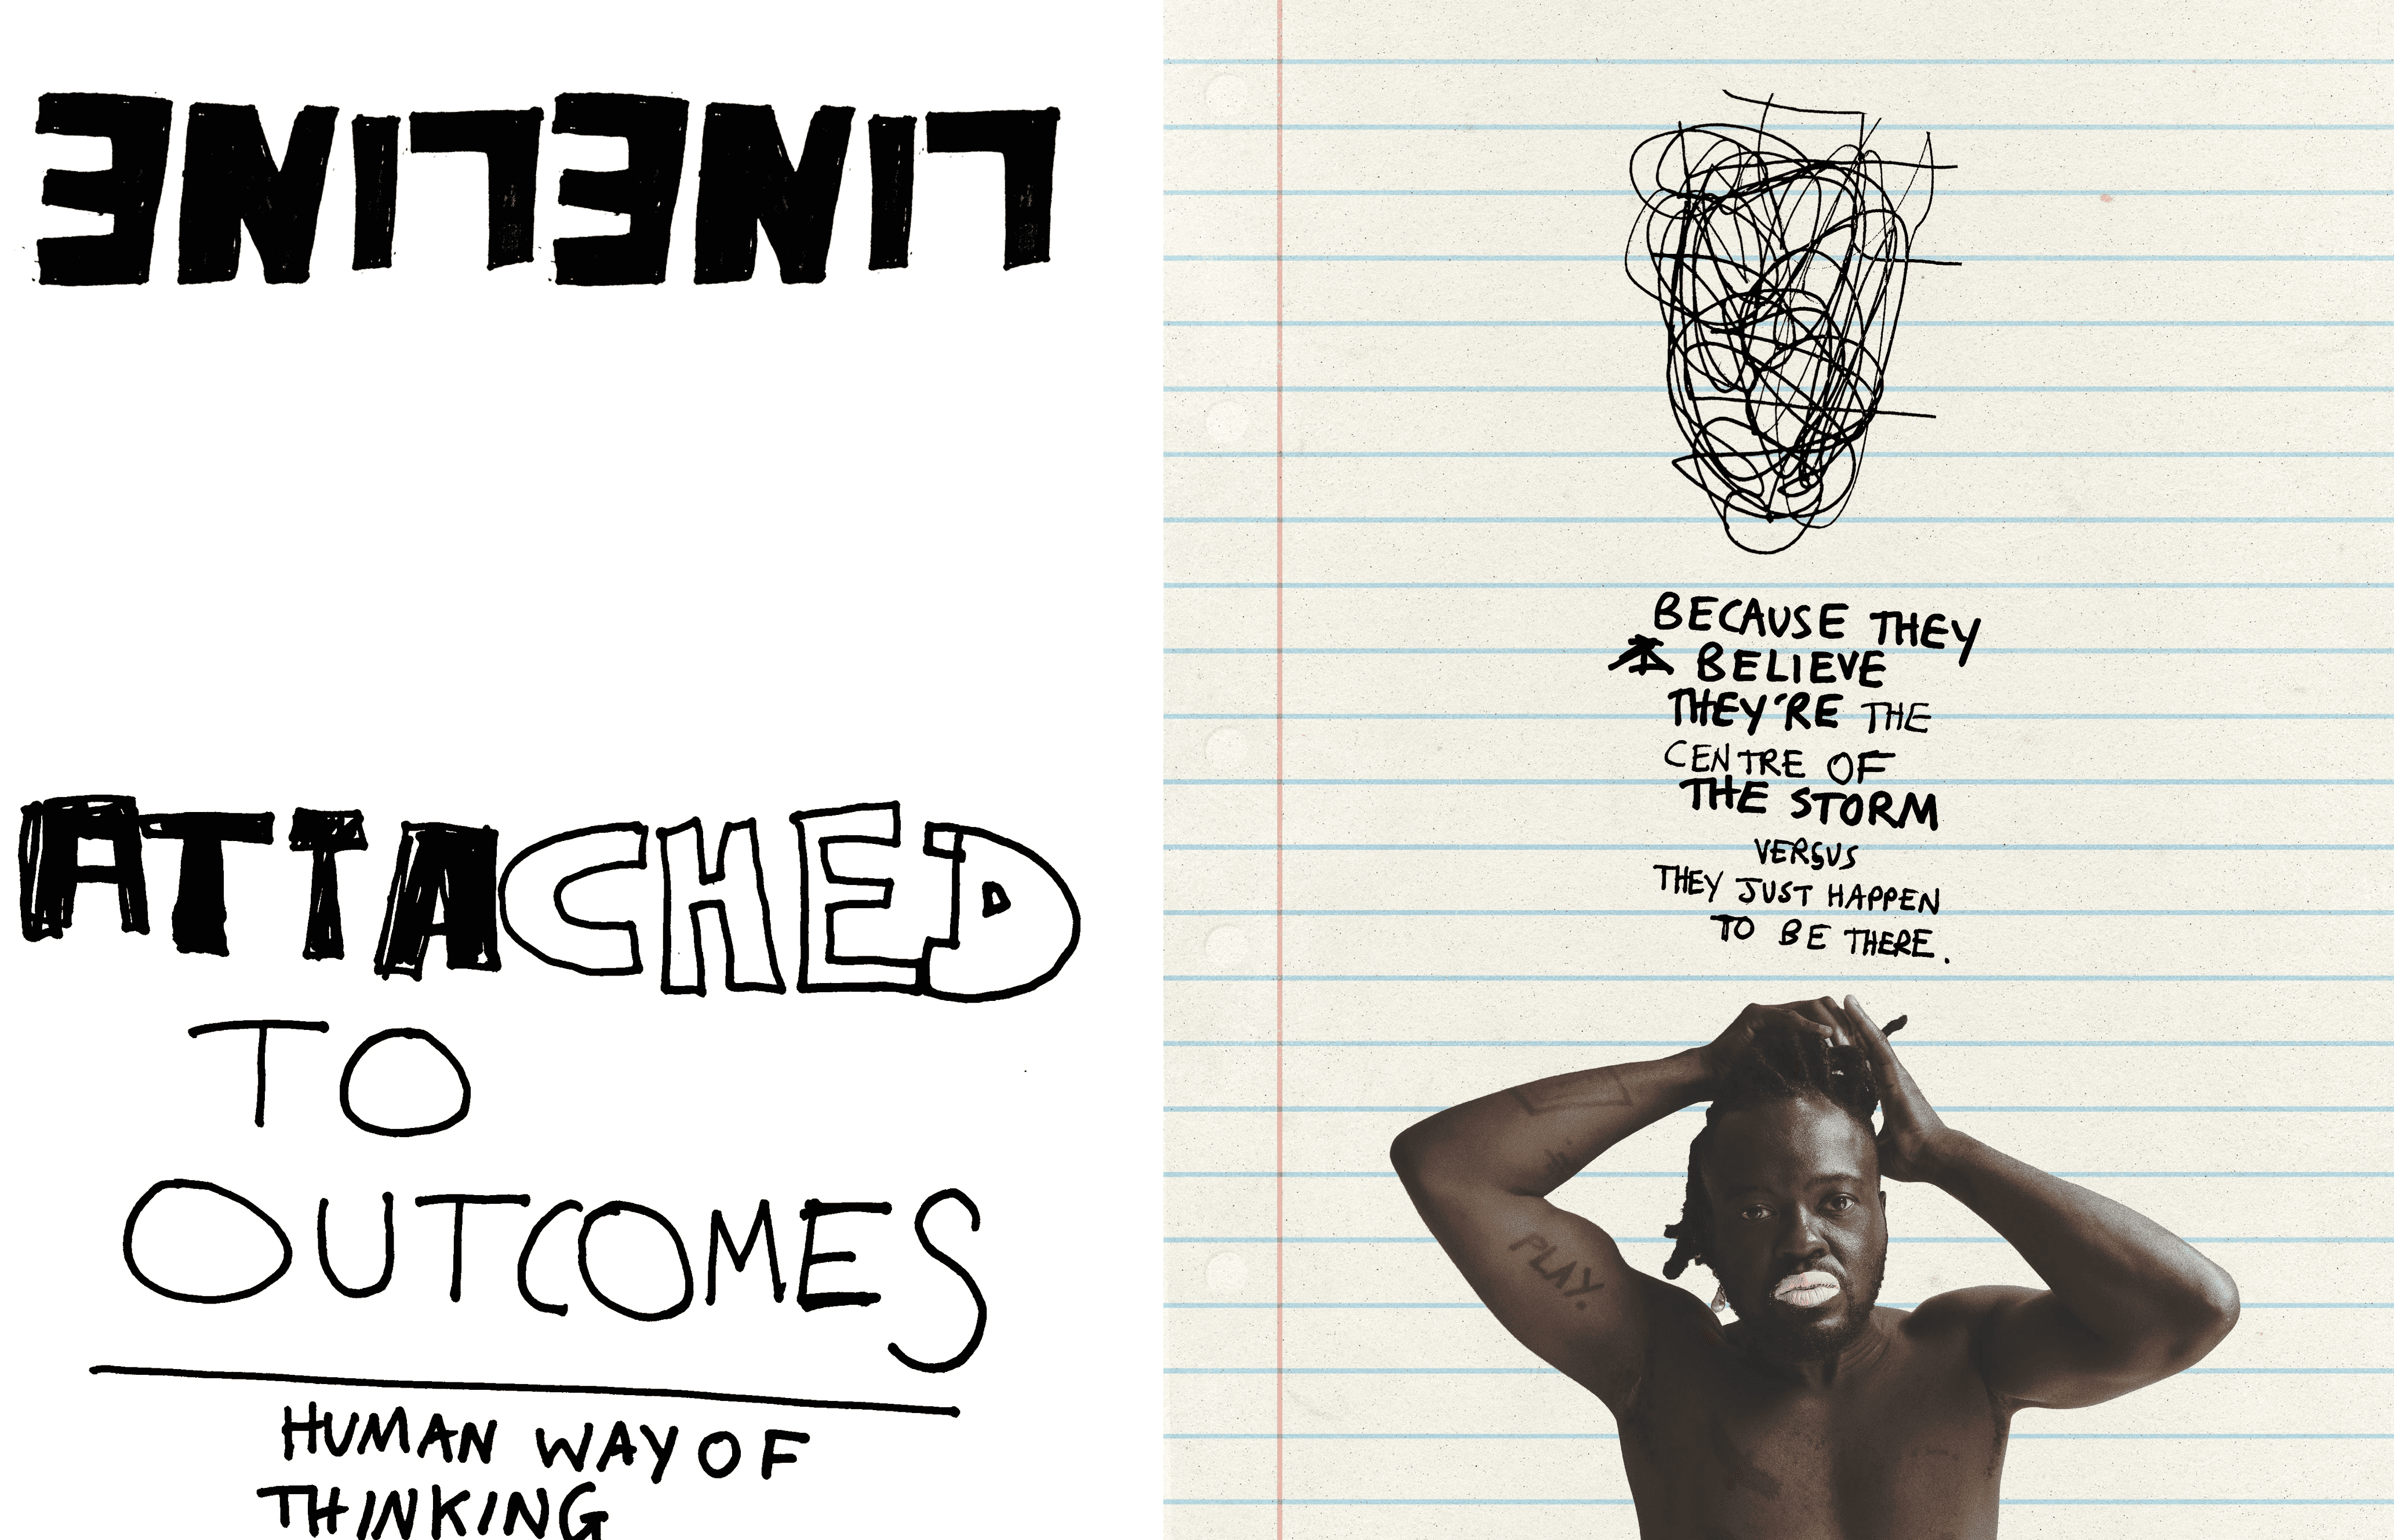 LINELINE
ATTACHED
TO
OUTCOMES
HUMAN WAY OF
THINKING
BECAUSE THEY
BELIEVE
THEY'RE THE
CENTRE OF
THE STORM
VERSUS
THEY JUST HAPPEN
TO BE THERE.
PLAY.